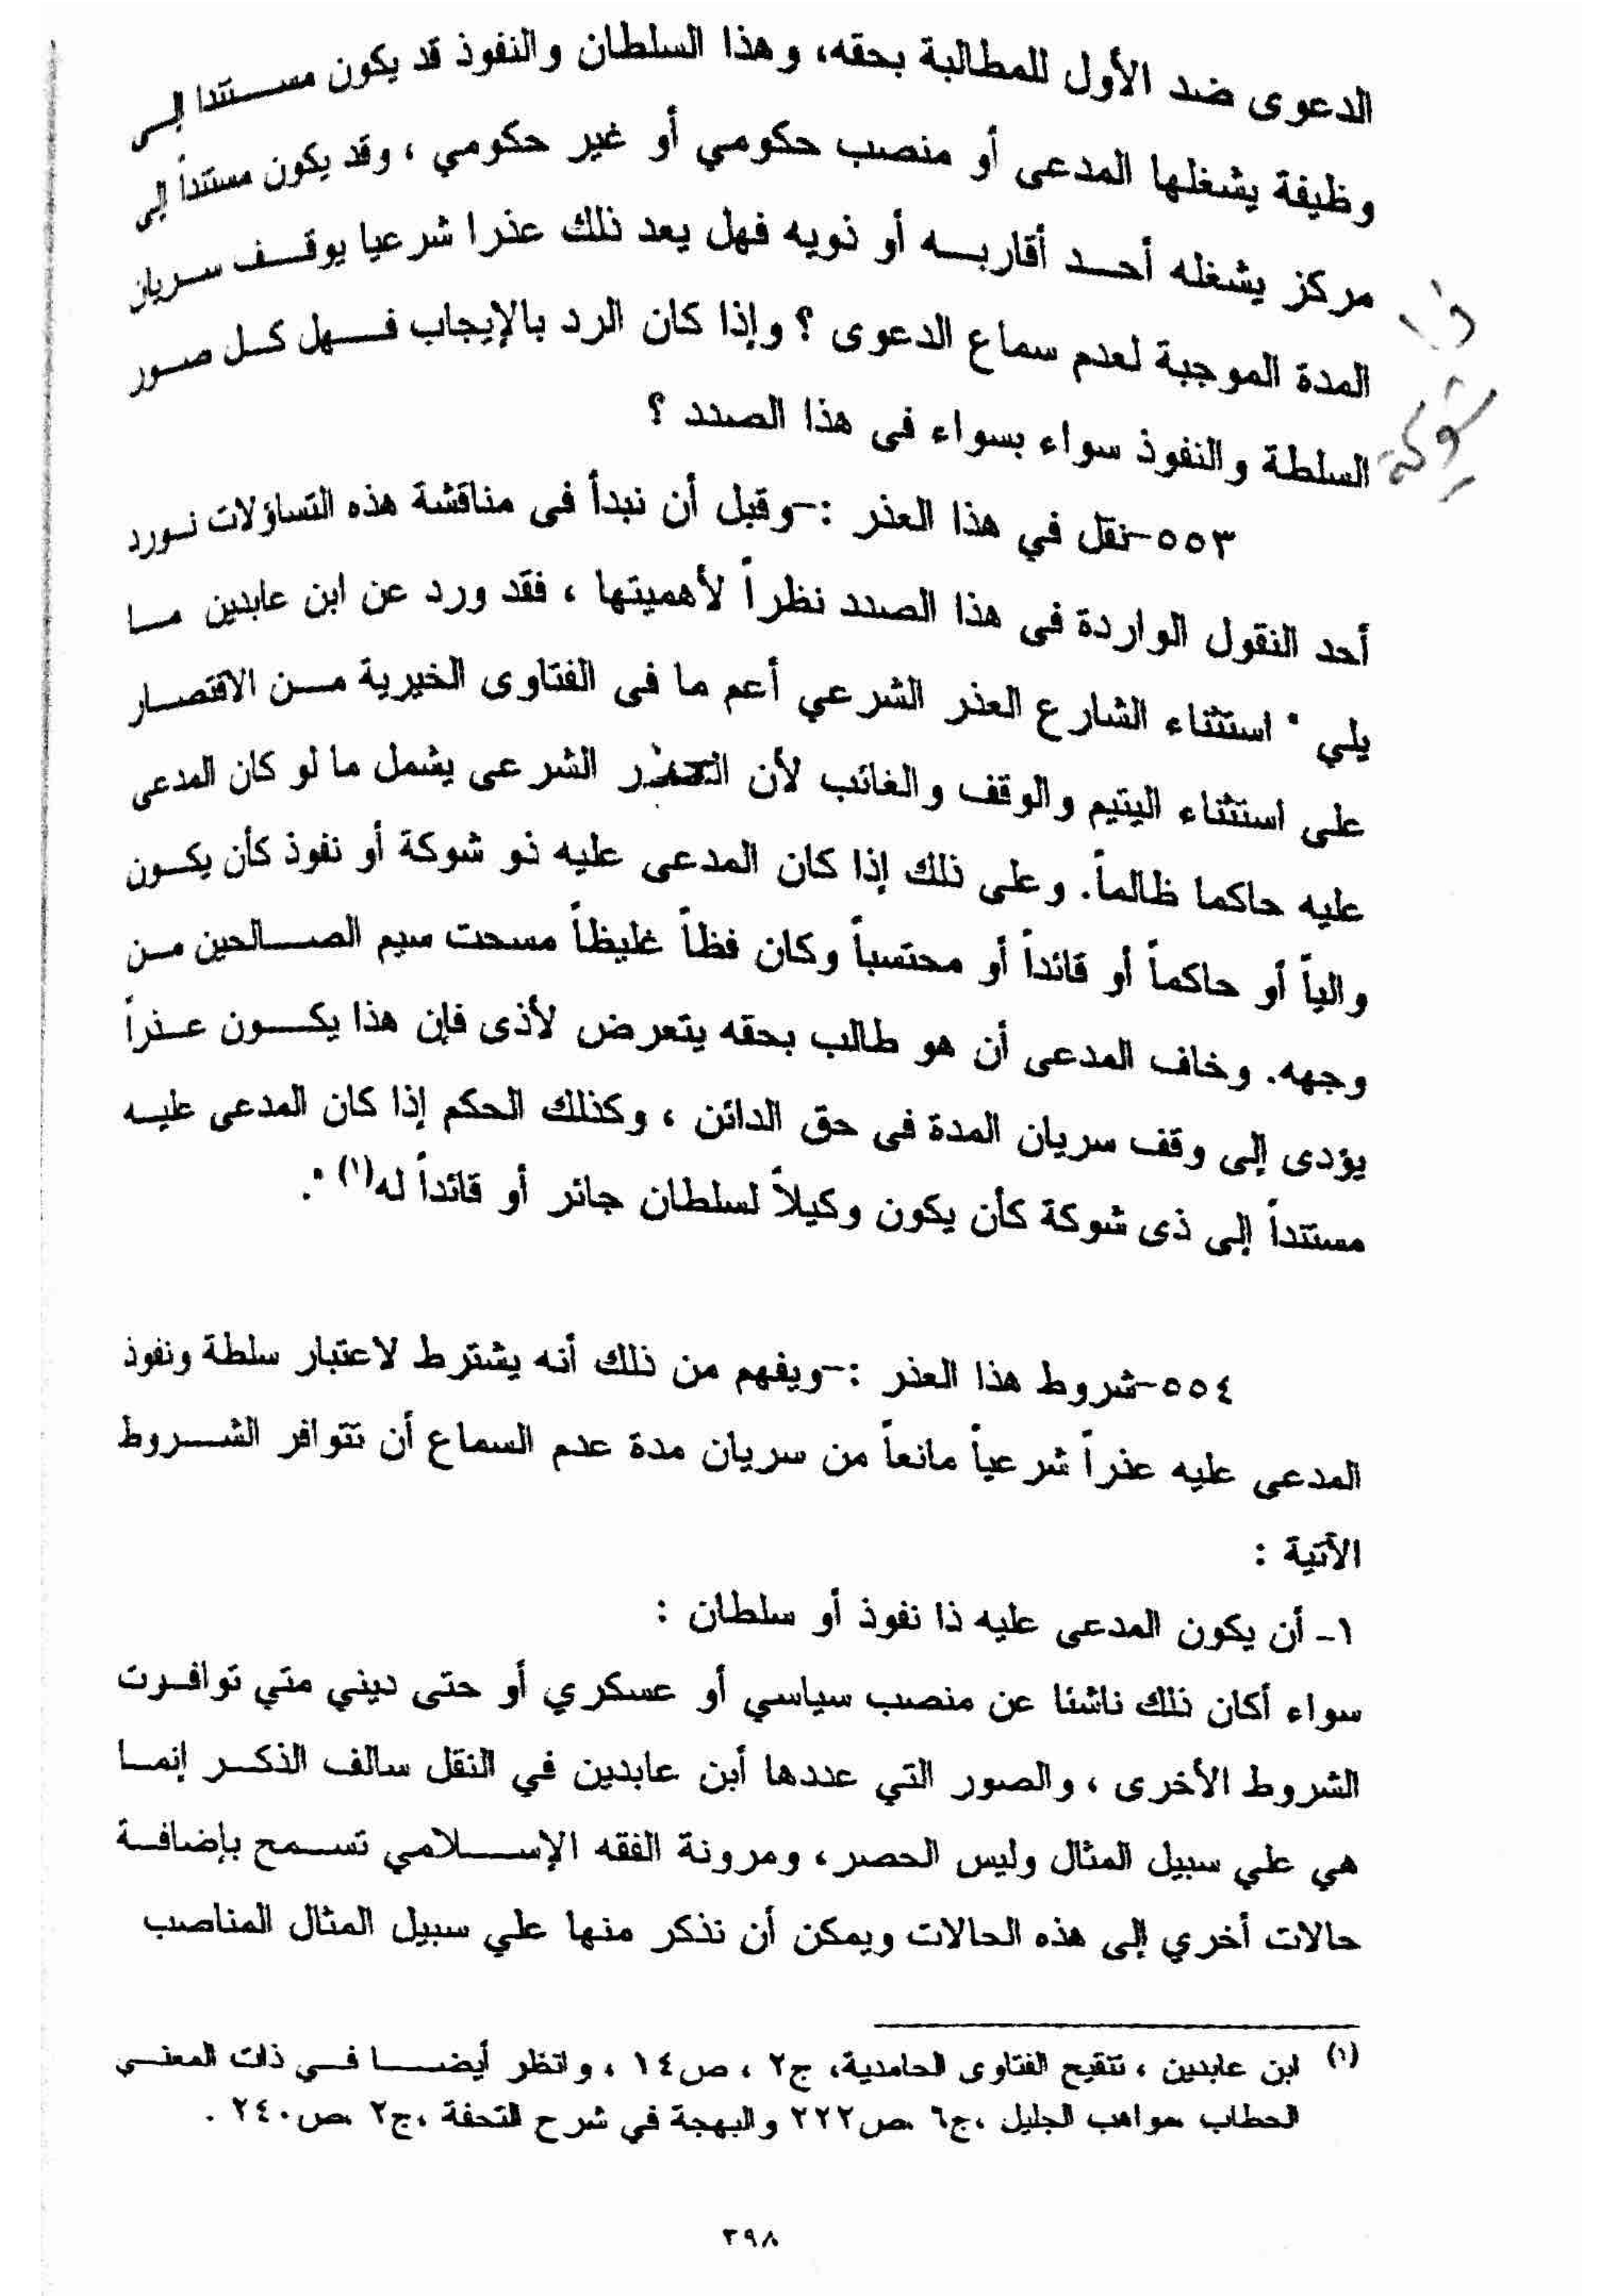 الدعوى ضد الأول للمطالبة بحقه، وهذا السلطان والنفوذ قد يكون مستندا إلى
وظيفة يشغلها المدعى أو منصب حكومي أو غير حكومي ، وقد يكون مستنداً إلى
مركز يشغله أحد أقاربه أو ذويه فهل يعد ذلك عذرا شرعيا يوقف سريان
المدة الموجبة لعدم سماع الدعوى ؟ وإذا كان الرد بالإيجاب فهل كل صور
السلطة والنفوذ سواء بسواء فى هذا الصدد ؟
ذا
شوكة
٥٥٣-نقل في هذا العذر :-وقبل أن نبدأ فى مناقشة هذه التساؤلات نورد
أحد النقول الواردة فى هذا الصدد نظراً لأهميتها ، فقد ورد عن ابن عابدين ما
يلي " استثناء الشارع العذر الشرعي أعم ما فى الفتاوى الخيرية من الاقتصار
على استثناء اليتيم والوقف والغائب لأن العذر الشرعى يشمل ما لو كان المدعى
عليه حاكما ظالماً. وعلى ذلك إذا كان المدعى عليه ذو شوكة أو نفوذ كأن يكون
والياً أو حاكماً أو قائداً أو محتسباً وكان فظاً غليظاً مسحت سيم الصالحين من
وجهه. وخاف المدعى أن هو طالب بحقه يتعرض لأذى فإن هذا يكون عذراً
يؤدى إلى وقف سريان المدة فى حق الدائن ، وكذلك الحكم إذا كان المدعى عليه
مستنداً إلى ذى شوكة كأن يكون وكيلاً لسلطان جائر أو قائداً له(١) ".
٥٥٤-شروط هذا العذر :-ويفهم من ذلك أنه يشترط لاعتبار سلطة ونفوذ
المدعى عليه عذراً شرعياً مانعاً من سريان مدة عدم السماع أن تتوافر الشروط
الآتية :
١- أن يكون المدعى عليه ذا نفوذ أو سلطان :
سواء أكان ذلك ناشئا عن منصب سياسي أو عسكري أو حتى ديني متي توافرت
الشروط الأخرى ، والصور التي عددها أبن عابدين في النقل سالف الذكر إنما
هي علي سبيل المثال وليس الحصر، ومرونة الفقه الإسلامي تسمح بإضافة
حالات أخري إلى هذه الحالات ويمكن أن نذكر منها علي سبيل المثال المناصب
(١) ابن عابدين ، تنقيح الفتاوى الحامدية، ج٢ ، ص١٤ ، وانظر أيضا في ذات المعني
الحطاب ،مواهب الجليل ،ج٦ ،ص٢٢٢ والبهجة في شرح التحفة ،ج٢ ،ص٢٤٠ .
٣٩٨